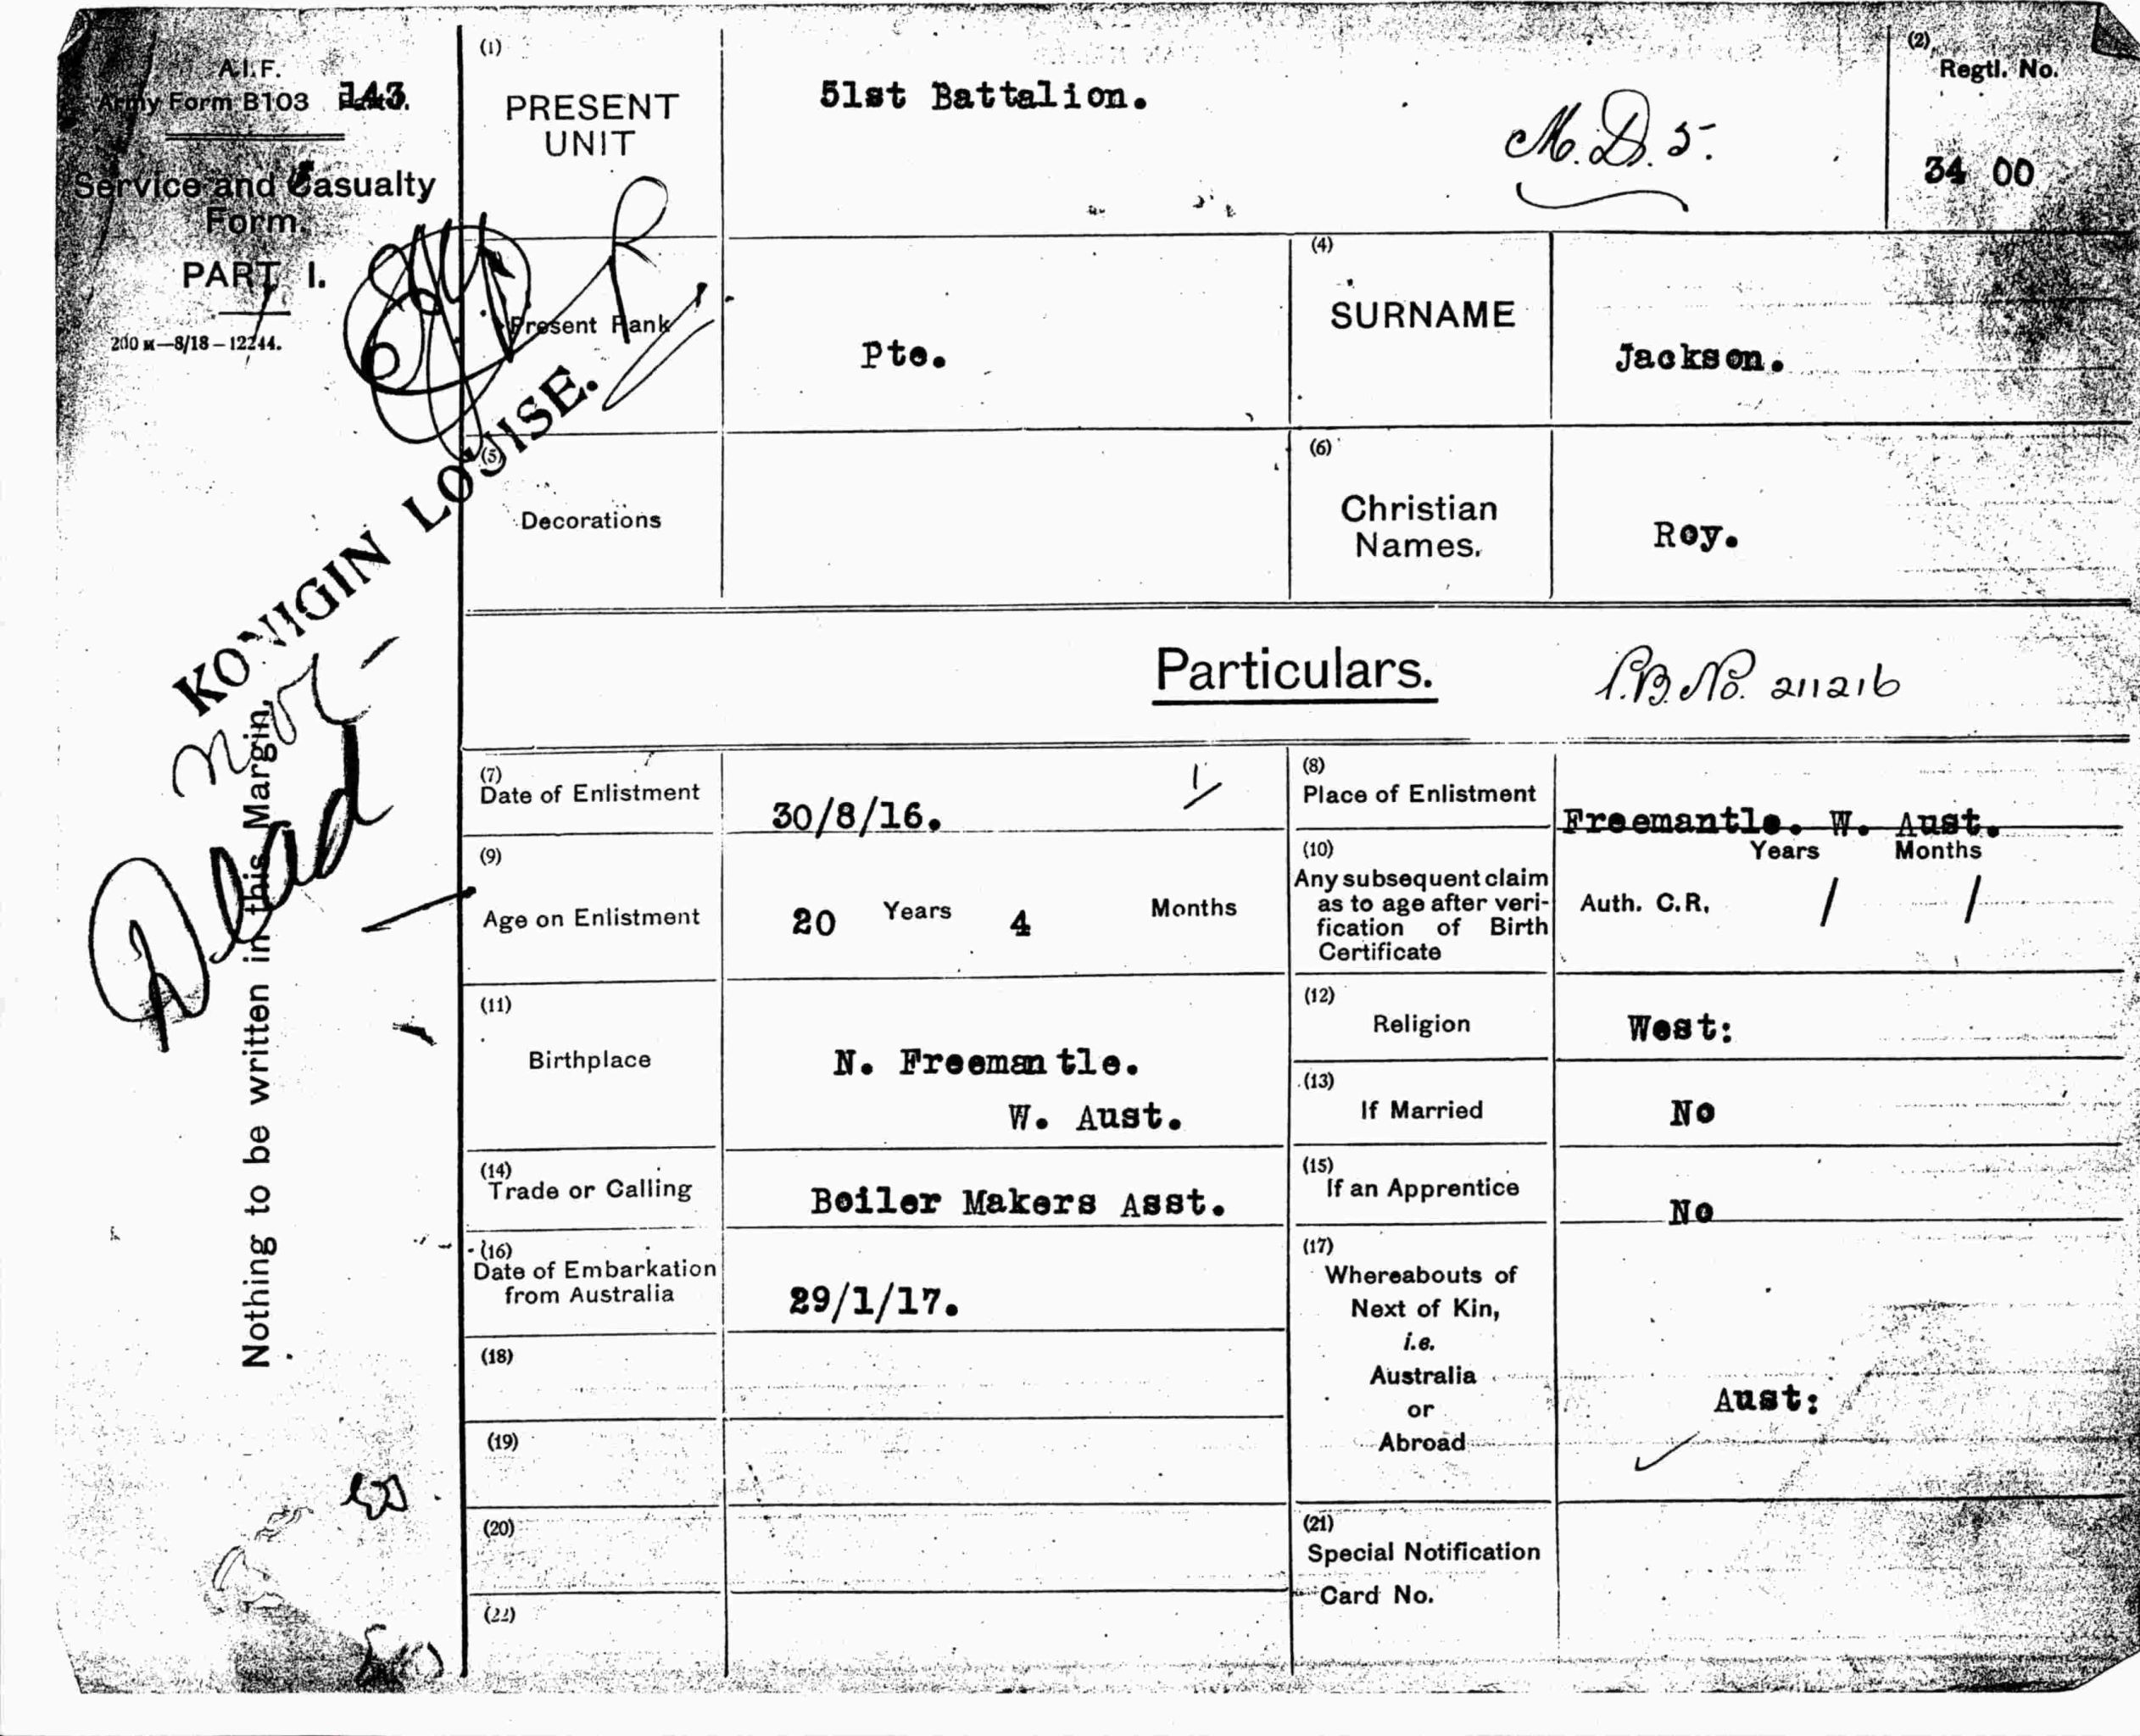 A.I.F.
Army Form B103 143.
Service and Casualty
Form.
PART I.
200 M—8/18—12244.
(1)
PRESENT
UNIT
51st Battalion.
M.D. 5.
(2)
Regtl. No.
34 00
Present Rank
Pte.
(4)
SURNAME
Jackson.
(5)
Decorations
(6)
Christian
Names.
Roy.
KONIGIN LOUISE.
Dead
Nothing to be written in this Margin.
Particulars.
P.B. No. 211216
(7)
Date of Enlistment
30/8/16.
(8)
Place of Enlistment
Freemantle. W. Aust.
(9)
Age on Enlistment
20 Years 4 Months
(10)
Any subsequent claim
as to age after veri-
fication of Birth
Certificate
Years Months
Auth. C.R. / /
(11)
Birthplace
N. Freemantle.
W. Aust.
(12)
Religion
West:
(13)
If Married
No
(14)
Trade or Calling
Boiler Makers Asst.
(15)
If an Apprentice
No
(16)
Date of Embarkation
from Australia
29/1/17.
(17)
Whereabouts of
Next of Kin,
i.e.
Australia
or
Abroad
Aust:
(18)
(19)
(20)
(21)
Special Notification
Card No.
(22)